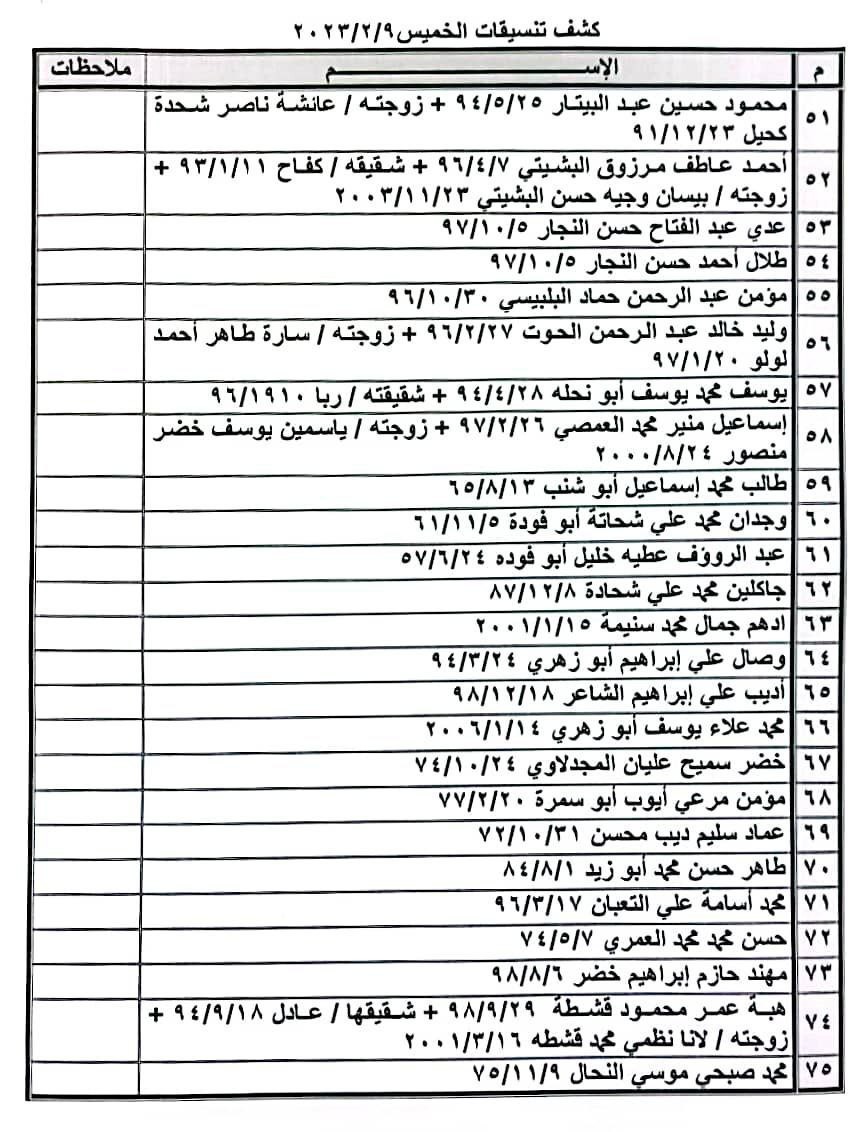 كشف تنسيقات الخميس ٢٠٢٣/٢/٩
م الإســـــــــــــــم ملاحظات
٥١ محمود حسين عبد البيتار ٩٤/٥/٢٥ + زوجته / عائشة ناصر شحدة
كحيل ٩١/١٢/٢٣
٥٢ أحمد عاطف مرزوق البشيتي ٩٦/٤/٧ + شقيقه / كفاح ٩٣/١/١١ +
زوجته / بيسان وجيه حسن البشيتي ٢٠٠٣/١١/٢٣
٥٣ عدي عبد الفتاح حسن النجار ٩٧/١٠/٥
٥٤ طلال أحمد حسن النجار ٩٧/١٠/٥
٥٥ مؤمن عبد الرحمن حماد البلبيسي ٩٦/١٠/٣٠
٥٦ وليد خالد عبد الرحمن الحوت ٩٦/٢/٢٧ + زوجته / سارة طاهر أحمد
لولو ٩٧/١/٢٠
٥٧ يوسف محمد يوسف أبو نحله ٩٤/٤/٢٨ + شقيقته / ربا ٩٦/١٩١٠
٥٨ إسماعيل منير محمد العمصي ٩٧/٢/٢٦ + زوجته / ياسمين يوسف خضر
منصور ٢٠٠٠/٨/٢٤
٥٩ طالب محمد إسماعيل أبو شنب ٦٥/٨/١٣
٦٠ وجدان محمد علي شحاتة أبو فودة ٦١/١١/٥
٦١ عبد الروؤف عطيه خليل أبو فوده ٥٧/٦/٢٤
٦٢ جاكلين محمد علي شحادة ٨٧/١٢/٨
٦٣ ادهم جمال محمد سنيمة ٢٠٠١/١/١٥
٦٤ وصال علي إبراهيم أبو زهري ٩٤/٣/٢٤
٦٥ أديب علي إبراهيم الشاعر ٩٨/١٢/١٨
٦٦ محمد علاء يوسف أبو زهري ٢٠٠٦/١/١٤
٦٧ خضر سميح عليان المجدلاوي ٧٤/١٠/٢٤
٦٨ مؤمن مرعي أيوب أبو سمرة ٧٧/٢/٢٠
٦٩ عماد سليم ديب محسن ٧٢/١٠/٣١
٧٠ طاهر حسن محمد أبو زيد ٨٤/٨/١
٧١ محمد أسامة علي التعبان ٩٦/٣/١٧
٧٢ حسن محمد محمد العمري ٧٤/٥/٧
٧٣ مهند حازم إبراهيم خضر ٩٨/٨/٦
٧٤ هبة عمر محمود قشطة ٩٨/٩/٢٩ + شقيقها / عادل ٩٤/٩/١٨ +
زوجته / لانا نظمي محمد قشطه ٢٠٠١/٣/١٦
٧٥ محمد صبحي موسي النحال ٧٥/١١/٩